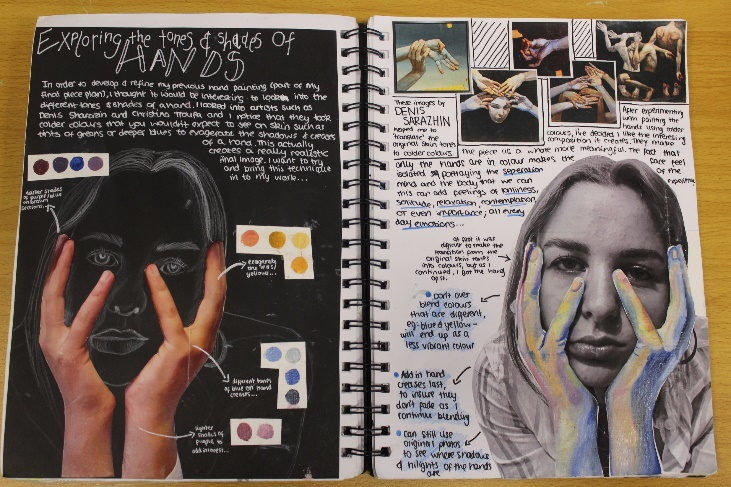 Exploring the tones & shades Of
HANDS
In order to develop & refine my previous hand painting (part of my
final piece plan), I thought it would be interesting to look into the
different tones & shades of a hand. I looked into artists such as
Denis Sharazin and Christina Troufa and I notice that they took
colder colours that you wouldn't expect to see on skin such as
tints of greens or deeper blues to exagerate the shadows & creases
of a hand. This actually
creates a really realistic
final image. I want to try
and bring this technique
in to my work...
darker shades
of purple/blue
in
sections...
exagerate
yellow...
different tints
of blue on hand
creases...
lighter
shades of
purple to
add interest...
These images by
DENIS
SARAZHIN
helped me to
the
original skin tones
to colder colours.
After experimenting
with painting the
hands using colder
colours, I've decided I like the interesting
composition it creates. They make
the piece as a whole more meaningful. The fact that
only the hands are in colour makes the face feel
isolated, portraying the seperation of the
mind and the body that we can experience
this can add feelings of loneliness,
solitude, relaxation, contemplation,
or even importance; all every
day emotions...
at first it was
difficult to make the
transition from the
original skin tones
into colours, but as I
continued, I got the hang
of it.
Don't over
blend colours
that are different,
eg- blue & yellow -
will end up as a
less vibrant colour
Add in hand
creases last,
to insure they
don't fade as I
continue blending
can still use
original photos
to see where shadows
& hilights of the hands
are